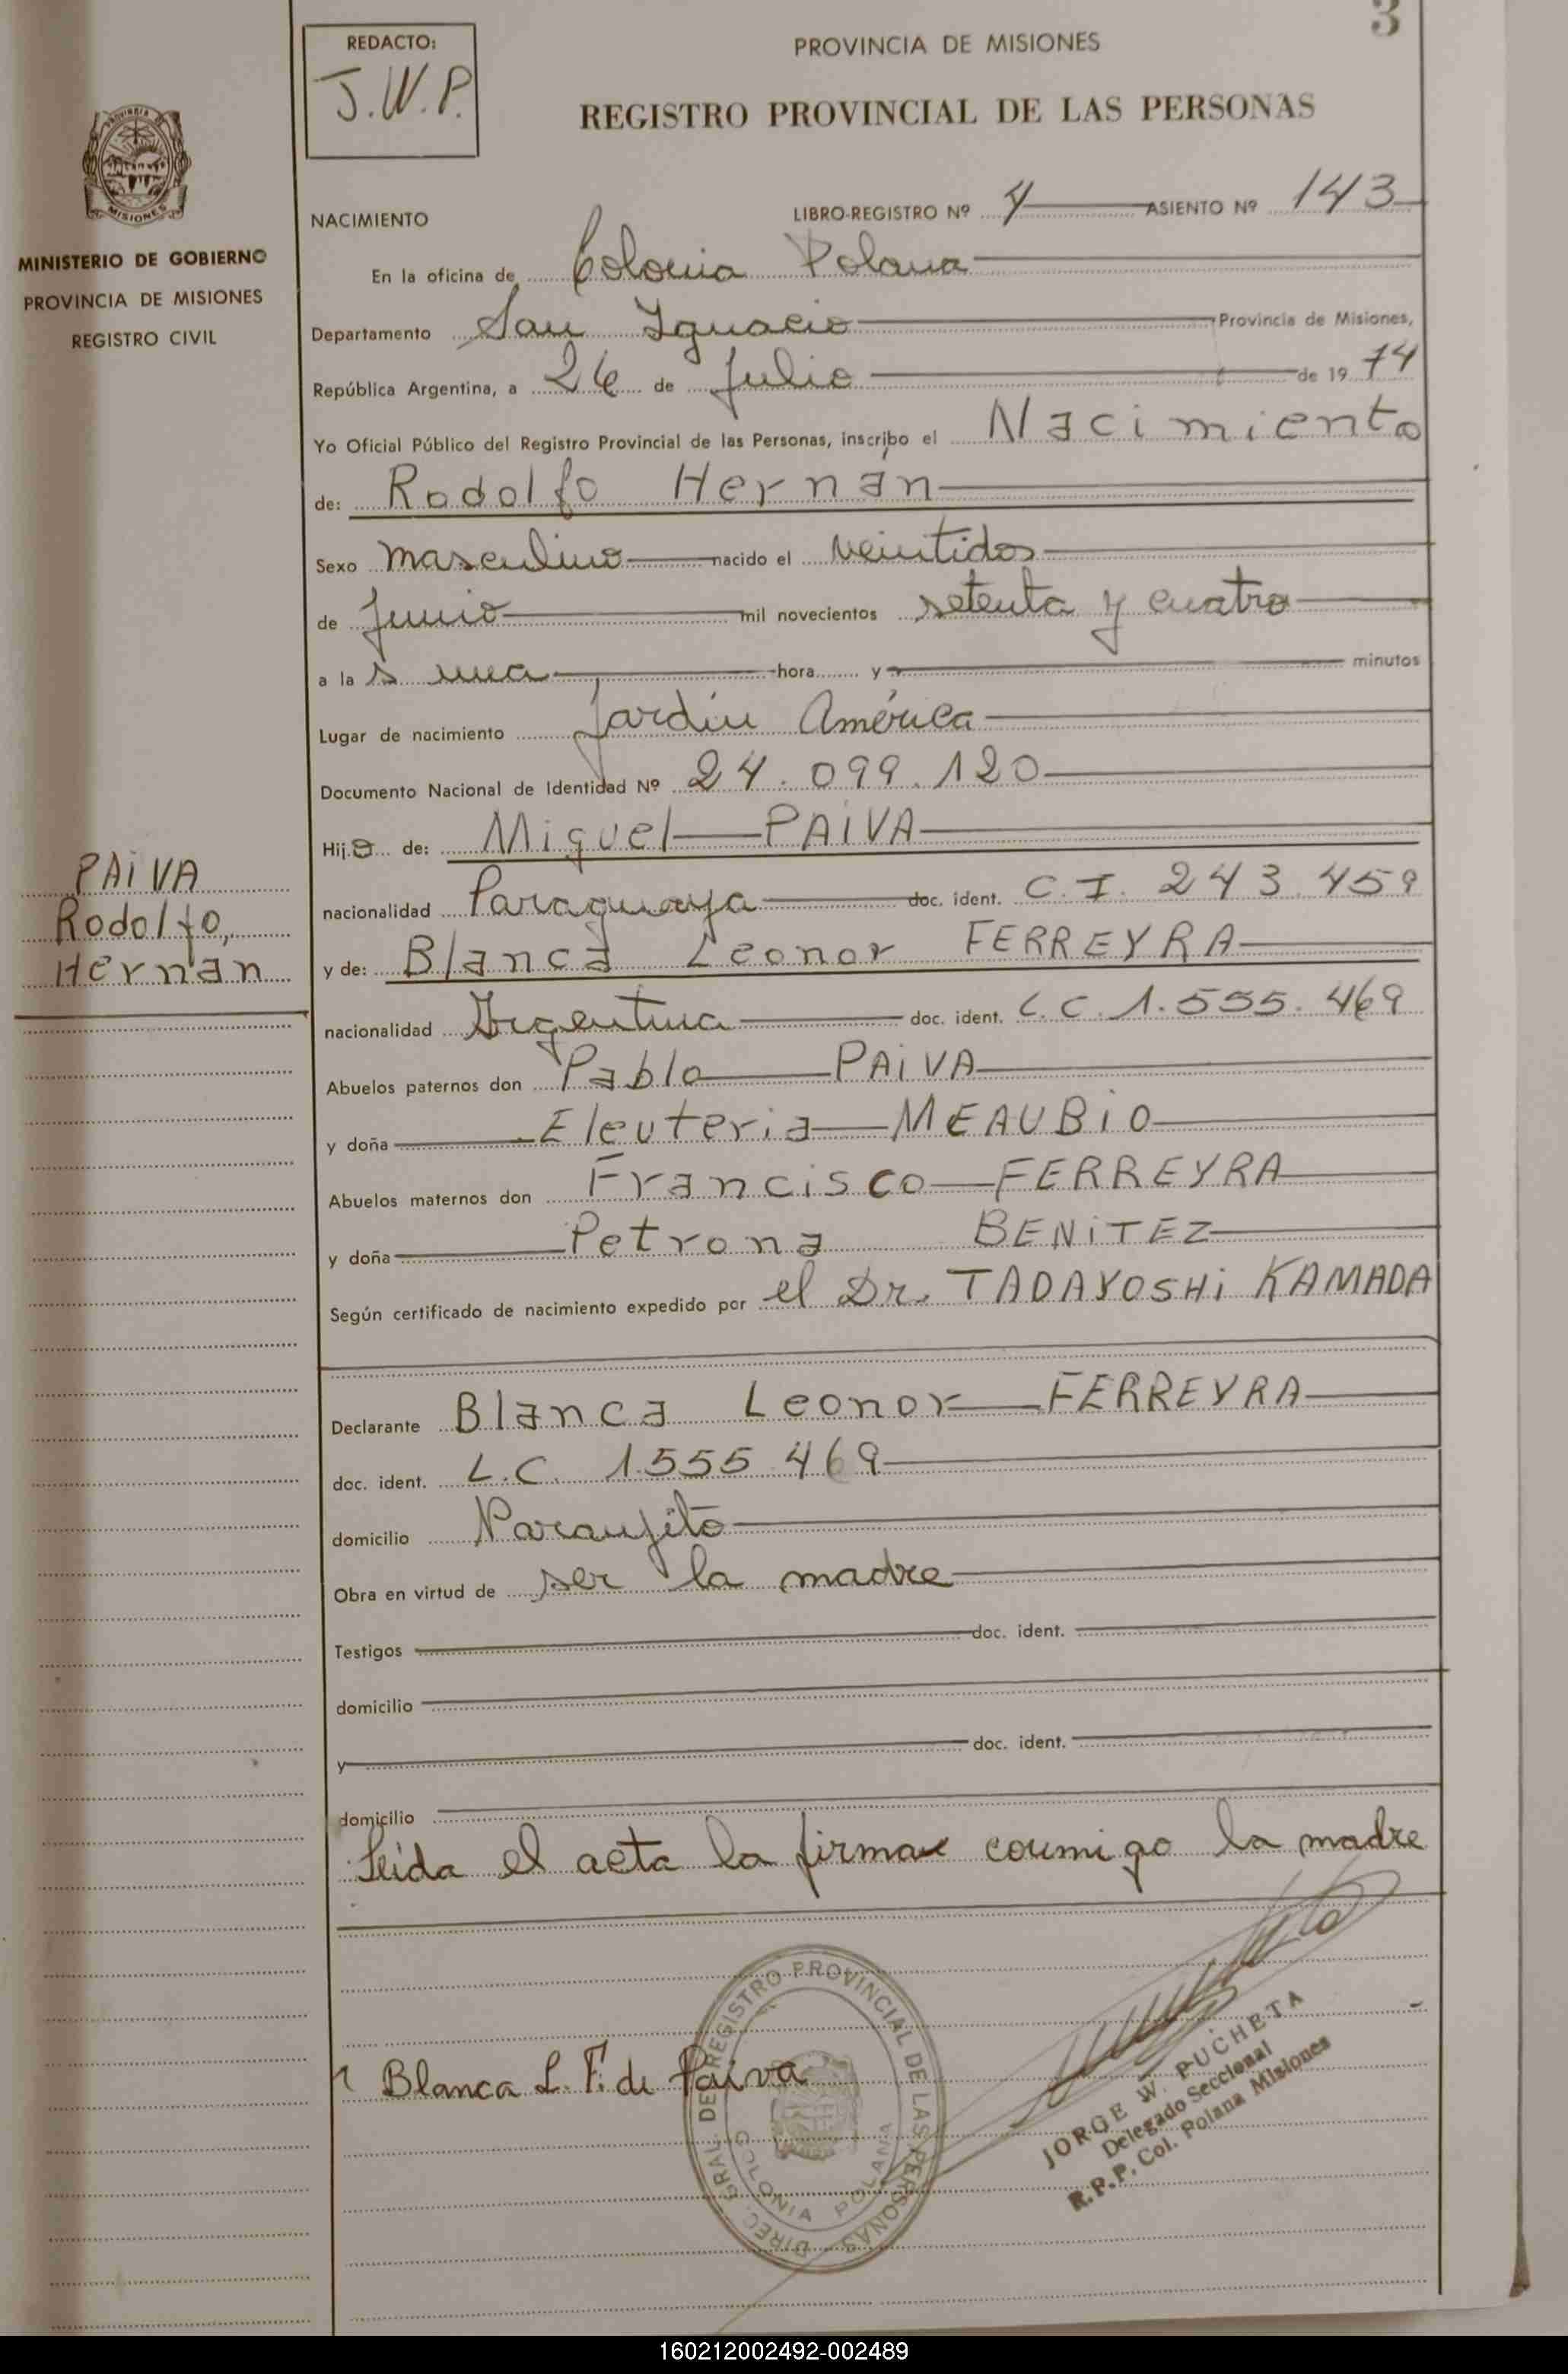 3
REDACTO:
J.W.P.
PROVINCIA DE MISIONES
REGISTRO PROVINCIAL DE LAS PERSONAS
MISIONES
MINISTERIO DE GOBIERNO
PROVINCIA DE MISIONES
REGISTRO CIVIL
NACIMIENTO
LIBRO-REGISTRO Nº 4 ASIENTO Nº 143
En la oficina de Colonia Polana
Departamento San Ignacio Provincia de Misiones,
República Argentina, a 26 de Julio de 1974
Yo Oficial Público del Registro Provincial de las Personas, inscribo el Nacimiento
de: Rodolfo Hernan
Sexo masculino nacido el veintidos
de Junio mil novecientos setenta y cuatro
a la s una hora y minutos
Lugar de nacimiento Jardín América
Documento Nacional de Identidad Nº 24.099.120
Hijo de: Miguel PAIVA
PAIVA
Rodolfo,
Hernan
nacionalidad Paraguaya doc. ident. C.I. 243.459
y de: Blanca Leonor FERREYRA
nacionalidad Argentina doc. ident. L.C. 1.555.469
Abuelos paternos don Pablo PAIVA
y doña Eleuteria MEAUBIO
Abuelos maternos don Francisco FERREYRA
y doña Petrona BENITEZ
Según certificado de nacimiento expedido por el Dr. TADAYOSHI KAMADA
Declarante Blanca Leonor FERREYRA
doc. ident. L.C. 1.555.469
domicilio Naranjito
Obra en virtud de ser la madre
Testigos doc. ident.
domicilio
y doc. ident.
domicilio
Leida el acta la firma conmigo la madre
Blanca L. F. de Paiva
DIREC. GRAL. DE REGISTRO PROVINCIAL DE LAS PERSONAS
COLONIA POLANA
JORGE W. PUCHETA
Delegado Seccional
R.P.P. Col. Polana Misiones
160212002492-002489